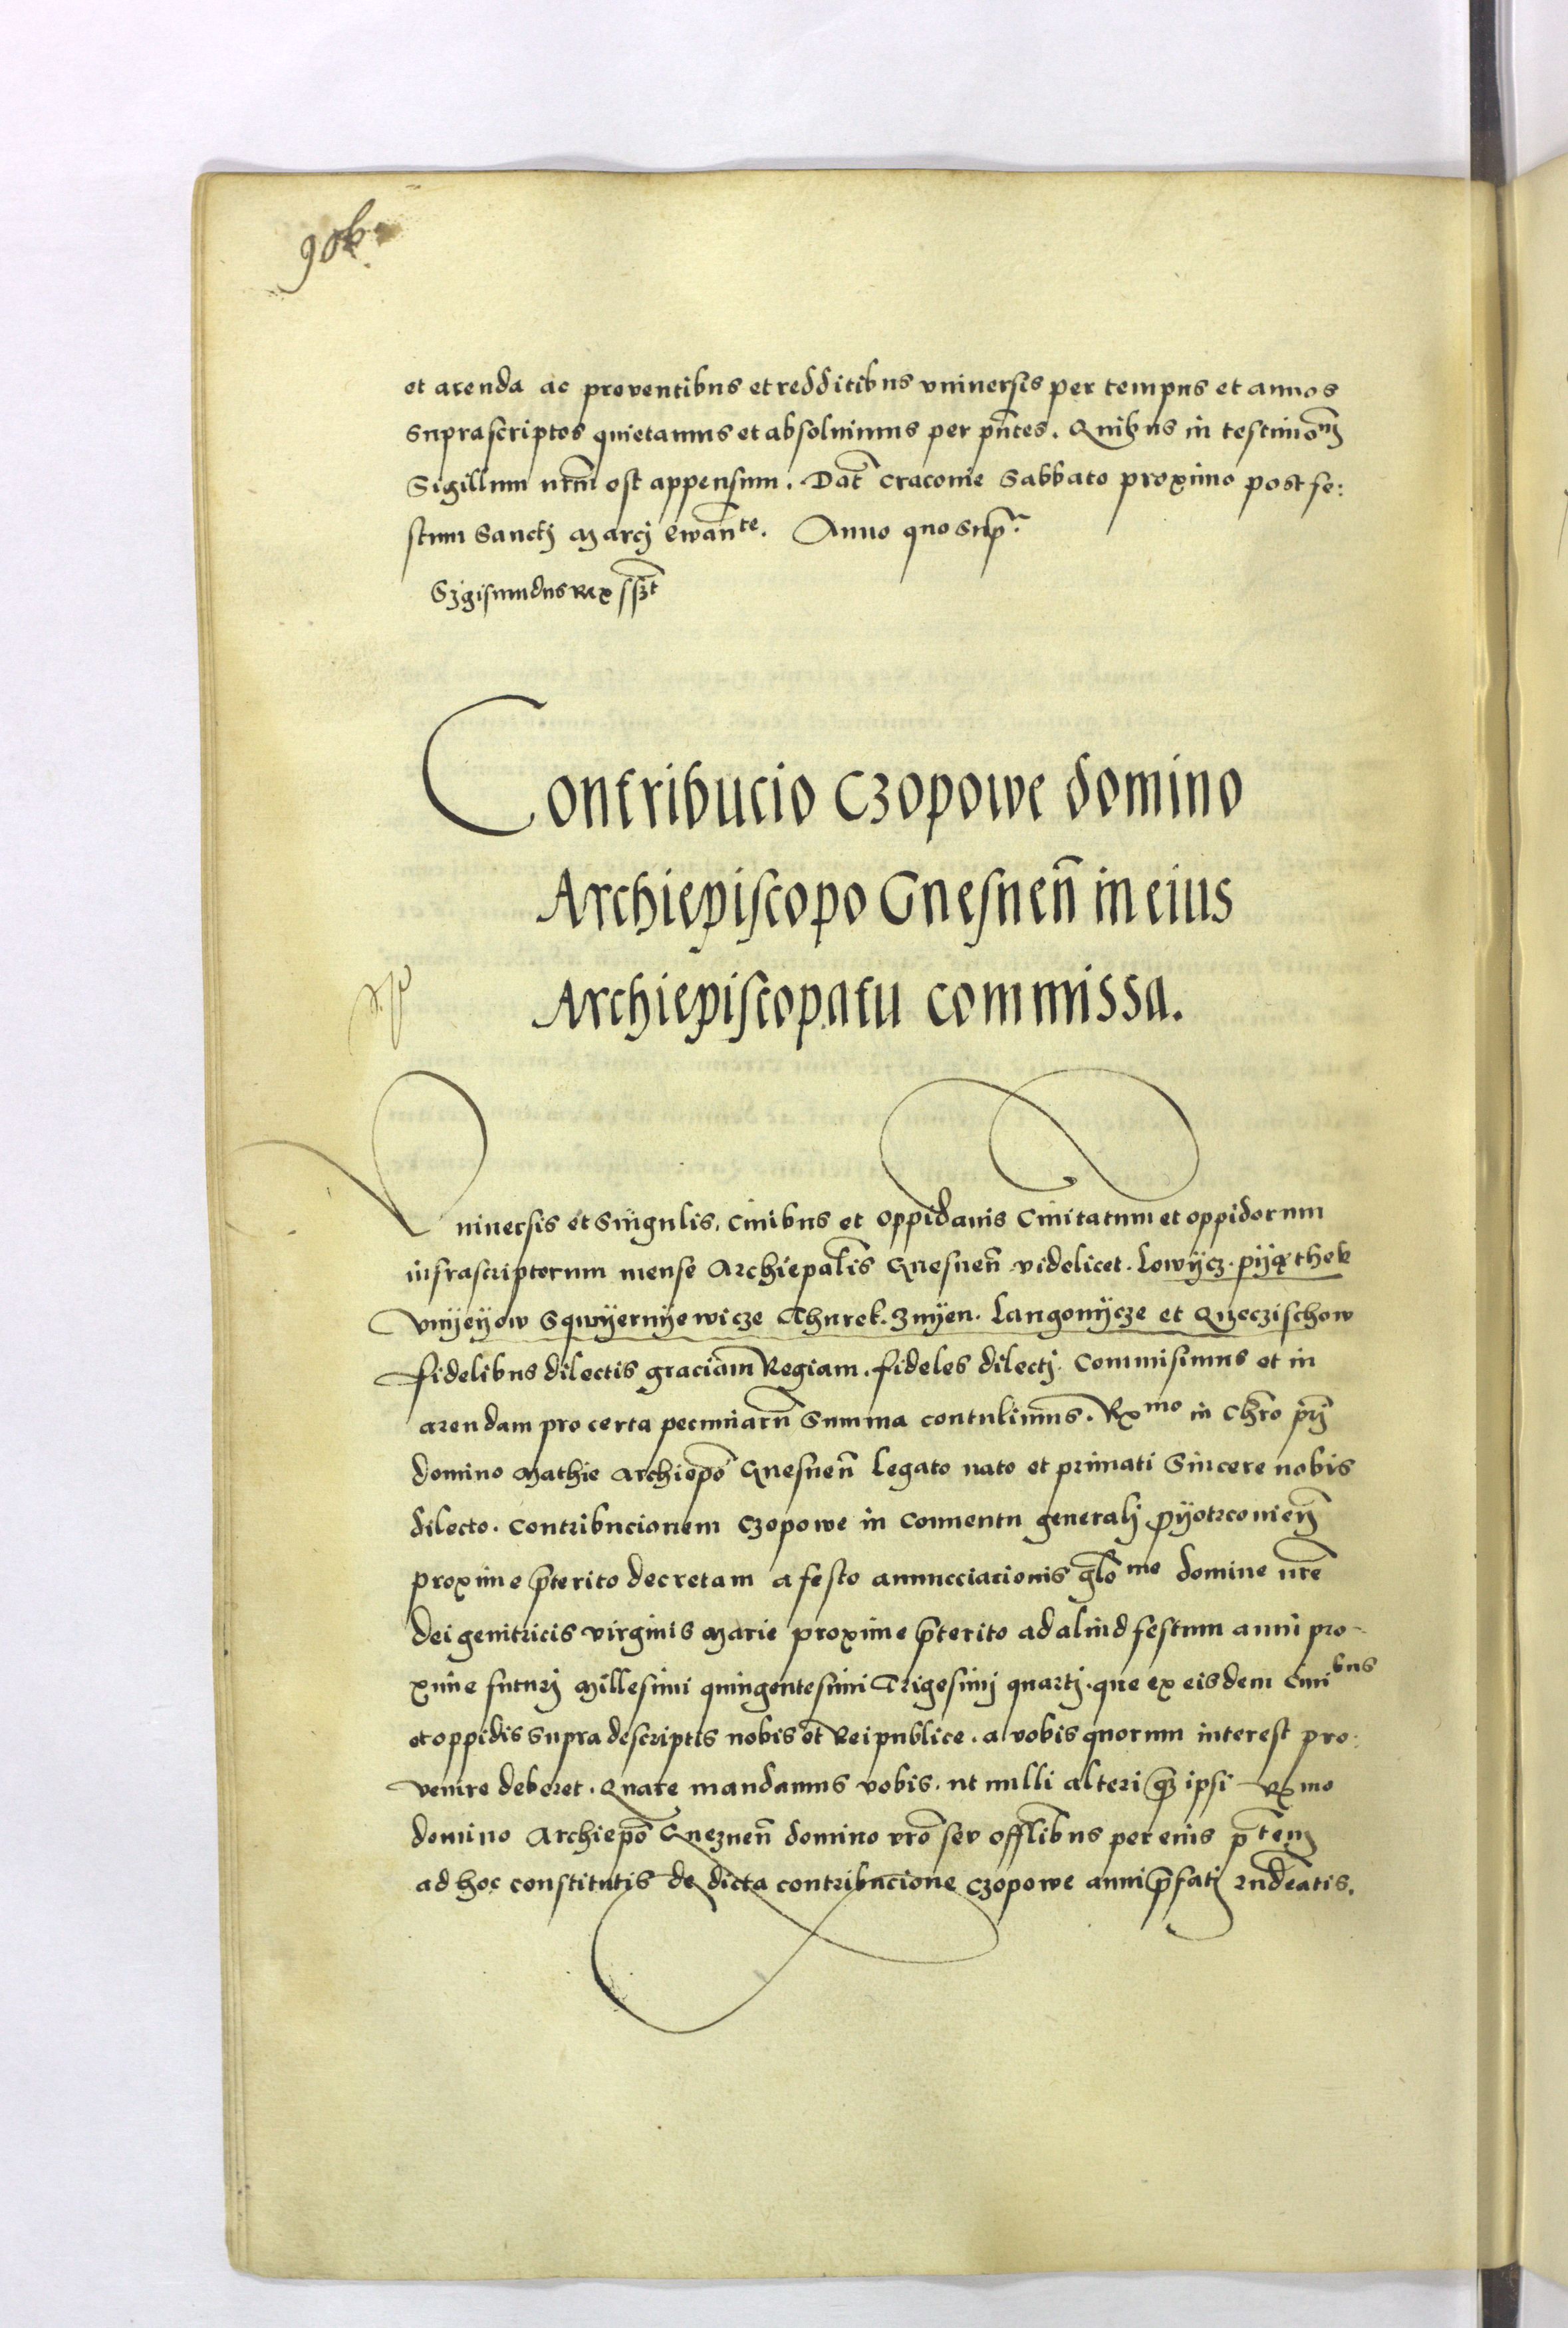 90b.
et arenda ac proventibus et redditibus vniuersis per tempus et annos
Suprascriptos quietamus et absoluimus per pñtes. Quibus in testimonȝ
Sigillum nr̃m est appensum. Dat̃ Cracouie Sabbato proximo post fe:
stum Sanctj Marcj Ewañte. Anno quo sup̃.
Sigismundus Rex sszt
Contribucio Czopowe domino
Archiepiscopo Gnesneñ in eius
Archiepiscopatu commissa.
Vniuersis et Singulis, Ciuibus et Oppidanis Ciuitatum et oppidorum
infrascriptorum mense Archiepalis̃ Gnesneñ videlicet. Lowÿcz. pÿąthek
Vnÿeÿow Sqwÿernÿewicze Thurek. Znÿen. Langonÿcze et Qÿeczischow
fidelibus dilectis graciam̃ Regiam. fideles dilectj. Commisimus et in
arendam pro certa pecuniarũ Summa contulimus. Rx̃mo in Chr̃o pr̃j
domino Mathie Archiepõ Gnesneñ Legato nato et primati Sincere nobis
dilecto. Contribucionem Czopowe in Conuentu generalj Pÿotrcouieñ
proxime p̃terito decretam a festo annucciacionis glõme domine nr̃e
dei genitricis virginis Marie proxime p̃terito ad aliud festum anni pro-
xime futurj Millesimi quingentesimi Trigesimj quartj. que ex eisdem Ciuibus
et oppidis supra descriptis nobis et̃ Reipublice. a vobis quorum interest pro:
venire deberet. Quare mandamus vobis. ut nulli alteri q̃z ipsi Rx̃mo
domino Archiepõ Gnezneñ domino vr̃o seu offlĩbus per eius p̃tem
ad hoc constitutis de dicta contribucione Czopowe anni p̃fatj rñdeatis.